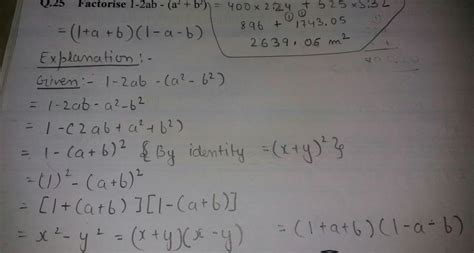 Q.25 Factorise 1-2ab - (a² + b²) = 400 × 2.24 + 525 × 3.32
896 + 1743.05
= (1+a+b)(1-a-b)
2639.05 m²
Explanation :-
Given:- 1-2ab -(a²-b²)
= 1-2ab-a²-b²
= 1-(2ab+a²+b²)
= 1-(a+b)² { By identity =(x+y)²}
=(1)²-(a+b)²
= [1+(a+b)][1-(a+b)]
= x²-y² = (x+y)(x-y) = (1+a+b)(1-a-b)